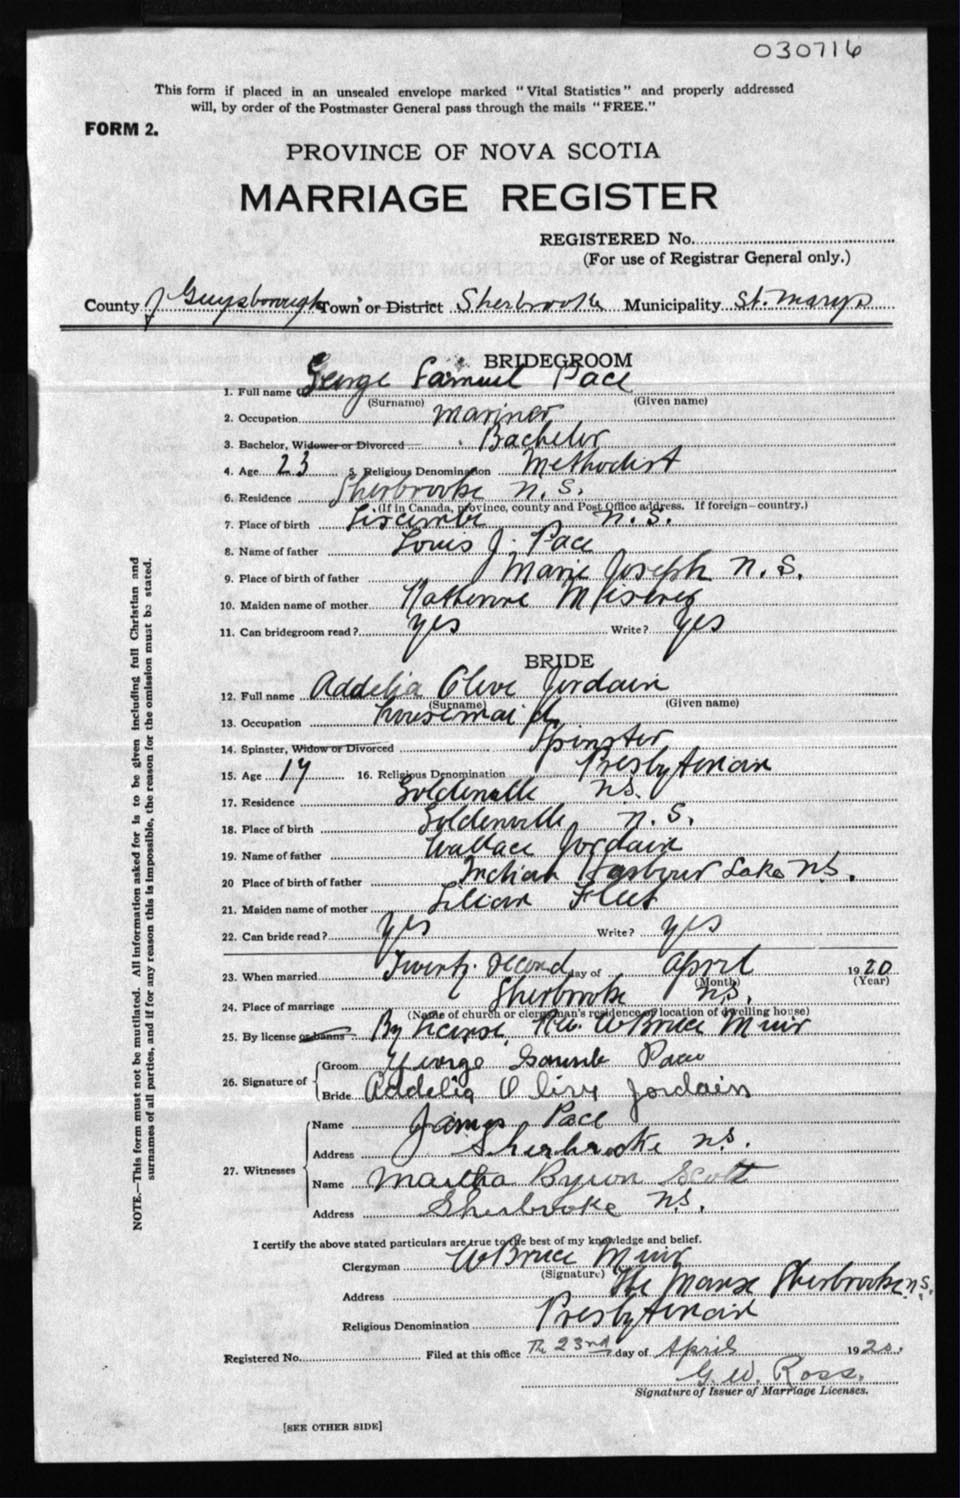 030716
This form if placed in an unsealed envelope marked "Vital Statistics" and properly addressed
will, by order of the Postmaster General pass through the mails "FREE."
FORM 2.
PROVINCE OF NOVA SCOTIA
MARRIAGE REGISTER
REGISTERED No.
(For use of Registrar General only.)
County of Guysborough Town or District Sherbrooke Municipality St. Marys
BRIDEGROOM
1. Full name George Samuel Pace
(Surname) (Given name)
2. Occupation mariner
3. Bachelor, Widower or Divorced Bachelor
4. Age 23 5. Religious Denomination Methodist
6. Residence Sherbrooke N.S.
(If in Canada, province, county and Post Office address. If foreign—country.)
7. Place of birth Liscombe N.S.
8. Name of father Louis J. Pace
9. Place of birth of father Marie Joseph N.S.
10. Maiden name of mother Katherine
11. Can bridegroom read? yes Write? yes
BRIDE
12. Full name Addelia Olive Jordain
(Surname) (Given name)
13. Occupation housemaid
14. Spinster, Widow or Divorced Spinster
15. Age 16. Religious Denomination Presbyterian
17. Residence Goldenville N.S.
18. Place of birth Goldenville N.S.
19. Name of father Wallace Jordain
20 Place of birth of father Indian Harbour Lake N.S.
21. Maiden name of mother Lilian Fleet
22. Can bride read? yes Write? yes
23. When married Twenty second day of April 1920
(Month) (Year)
24. Place of marriage Sherbrooke N.S.
(Name of church or clergyman's residence or location of dwelling house)
25. By license or banns By license Rev. W Bruce Muir
26. Signature of Groom George Samule Pace
Bride Addelia Olive Jordain
27. Witnesses Name James Pace
Address Sherbrooke N.S.
Name Martha Byron Scott
Address Sherbrooke N.S.
I certify the above stated particulars are true to the best of my knowledge and belief.
Clergyman W Bruce Muir
(Signature)
Address The Manse Sherbrooke N.S.
Religious Denomination Presbyterian
Registered No. Filed at this office The 23rd day of April 1920.
G. W. Ross.
Signature of Issuer of Marriage Licenses.
[SEE OTHER SIDE]
NOTE.—This form must not be mutilated. All information asked for is to be given including full Christian and
surnames of all parties, and if for any reason this is impossible, the reason for the omission must be stated.